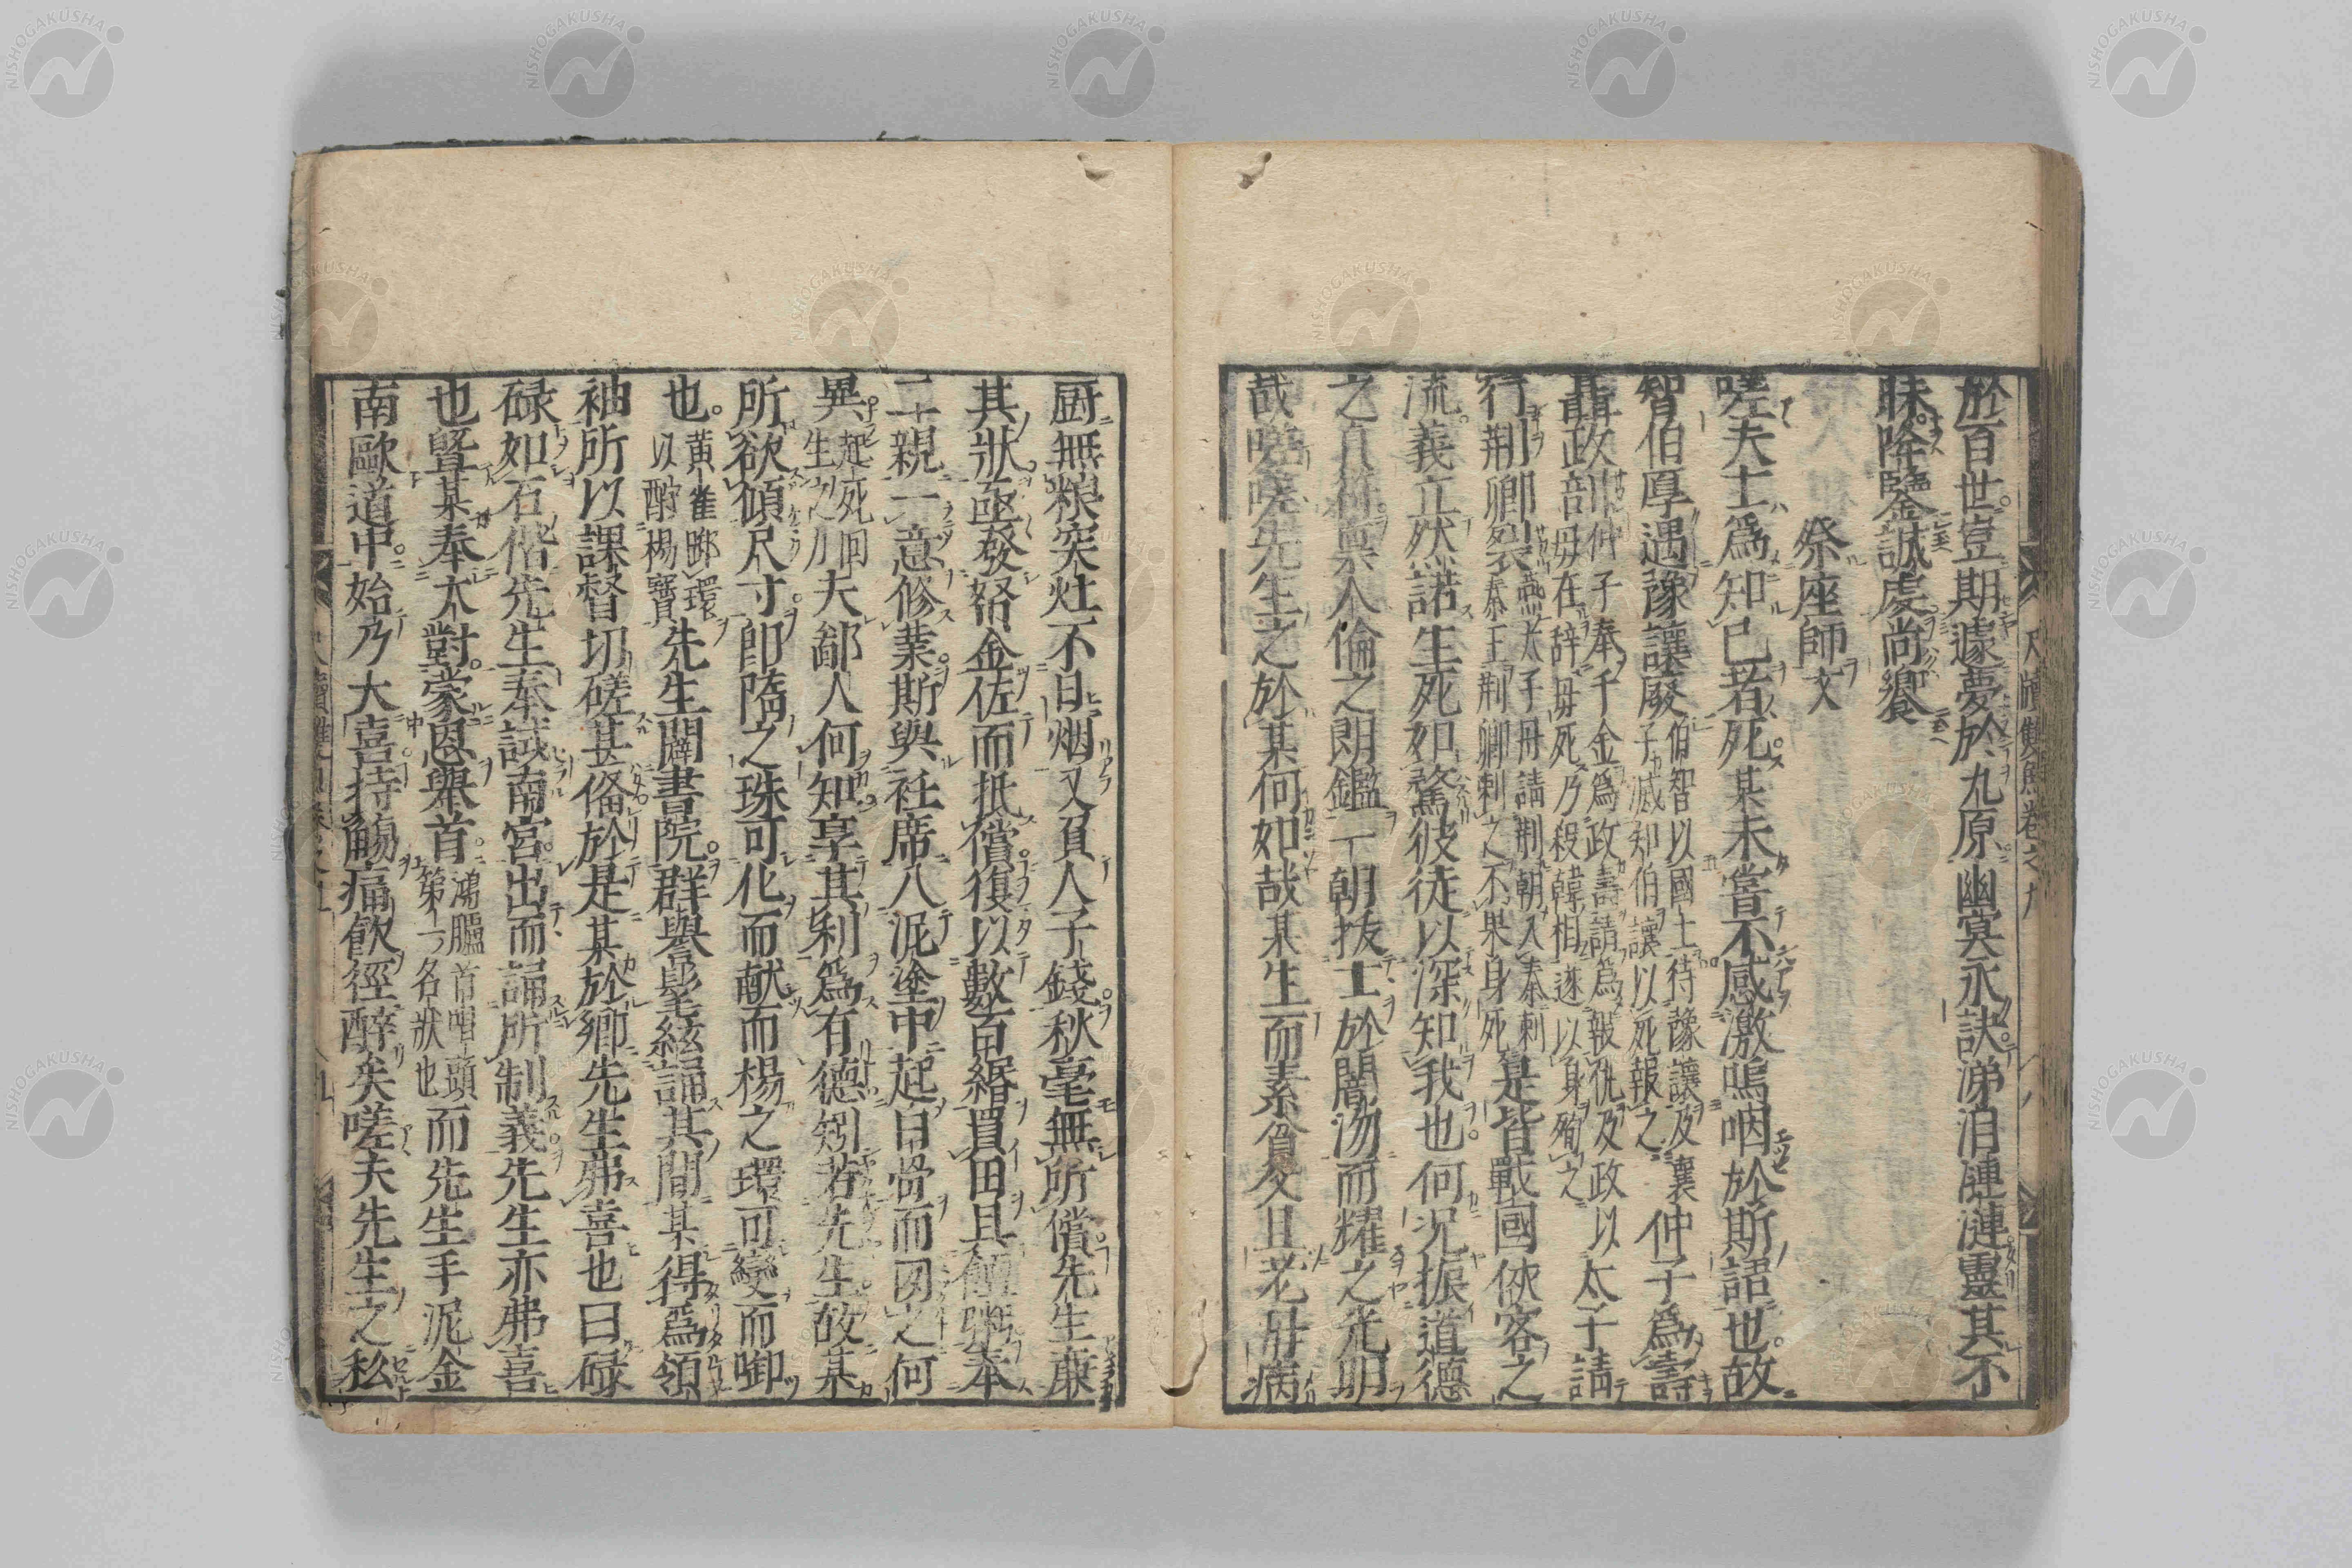 於百世豈期遽夢於九原幽冥永訣涕泪漣漣靈其不
昧降鑒誠虔尚饗
祭座師文
嗟夫士爲知己者死某未嘗不感激嗚咽於斯語也故
智伯厚遇豫讓廢伯智以國士待豫讓及襄子滅知伯讓以死報之仲子爲壽
聶政剖仲子奉千金爲政壽請爲報仇及政以母在辞母死乃殺韓相遂以身殉之太子請
行荆卿裂燕太子丹請荆朝入秦刺秦王荆卿刺之不果身死是皆戰國俠客之
流義立然諾生死如鶩彼徒以深知我也何况振道德
之真符禀人倫之朗鑑一朝拔士於闇汤而耀之光明
哉嗟嗟先生之於某何如哉某生而素貧且老丹病
厨無粮突灶不日烟又負人子錢秋毫無所償先生廉
其狀亟發帑金佐而抵償復以數百緡買田具饘粥奉
二親一意修業斯與袵席八泥塗中起白骨而肉之何
異起死回生之川夫鄙人何知享其利爲有德矧若先生故某
所欲傾尺寸即隋之珠可化而献而楊之環可變而啣
也黄雀啣環以酧楊寶先生闢書院群譽髦絃誦其間某得爲領
袖所以課督切磋甚俻於是某於鄉先生弗喜也曰碌
碌如石偕先生奉試南宮出而誦所制義先生亦弗喜
也曁某奉大對蒙恩舉首鴻臚首唱頭第一名狀也而先生手泥金
南歐道中始乃大喜持觴痛飲徑醉矣嗟夫先生之私